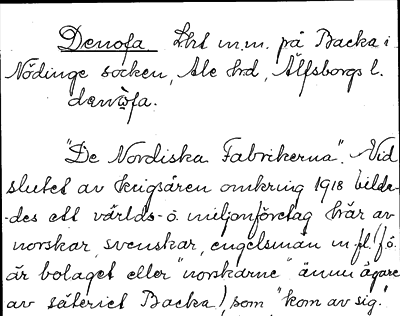 Denofa. Lht m.m. på Backa i
Nödinge socken, Ale hrd, Älfsborgs l.
denòfa.
"De Nordiska Fabrikerna". Vid
slutet av krigsåren omkring 1918 bilda-
des ett världs- o. miljonföretag här av
norskar, svenskar, engelsmän m fl. (fö.
är bolaget eller "norskarne" ännu ägare
av säteriet Backa), som "kom av sig."